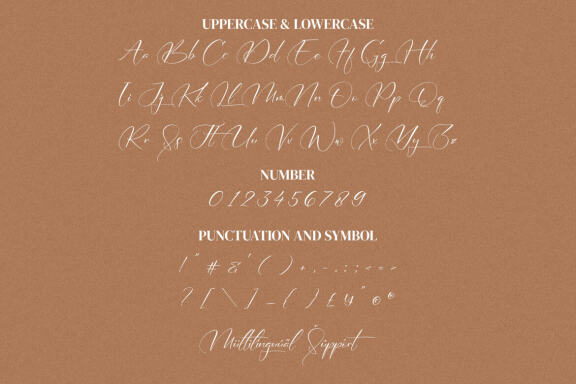 UPPERCASE & LOWERCASE
Aa Bb Cc Dd Ee Ff Gg Hh
Ii Jj Kk Ll Mm Nn Oo Pp Qq
Rr Ss Tt Uu Vv Ww Xx Yy Zz
NUMBER
0123456789
PUNCTUATION AND SYMBOL
! " # & ' ( ) + , - . : ; < = >
? [ \ ] _ { } £ ¥ " © ®
Multilingual Support